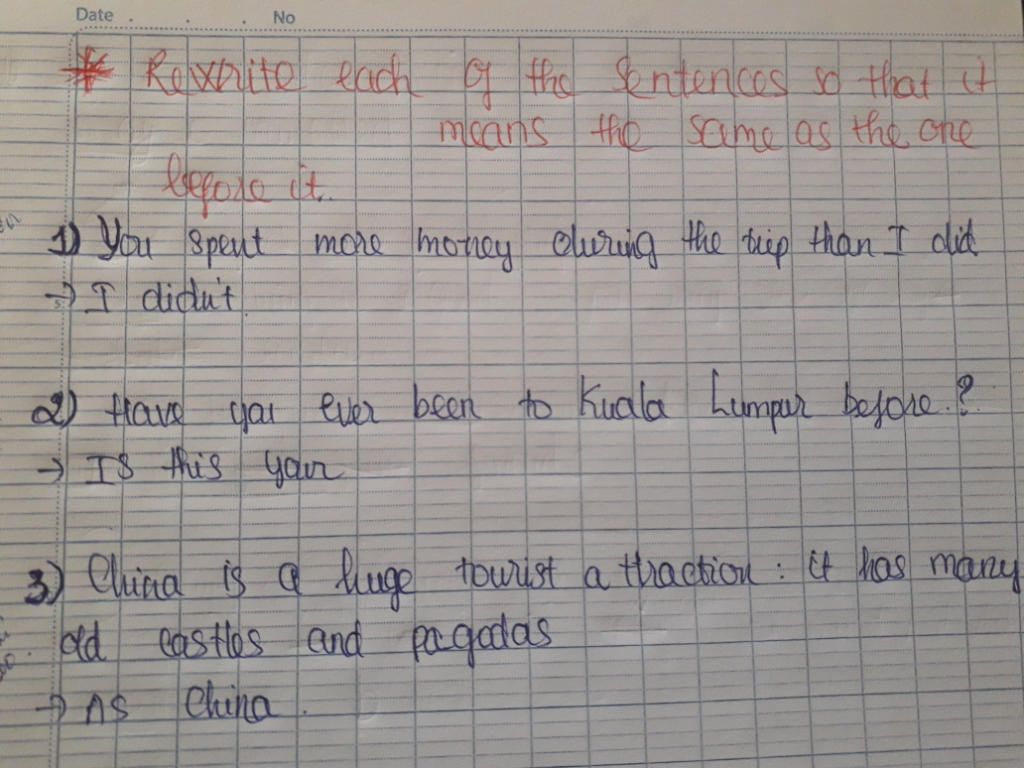 Date . . . No
* Rewrite each of the sentences so that it
means the same as the one
before it.
1) You spent more money during the trip than I did
→ I didn't
2) Have you ever been to Kuala Lumpur before.?
→ Is this your
3) China is a huge tourist attraction : it has many
old castles and pagodas
→ As China.